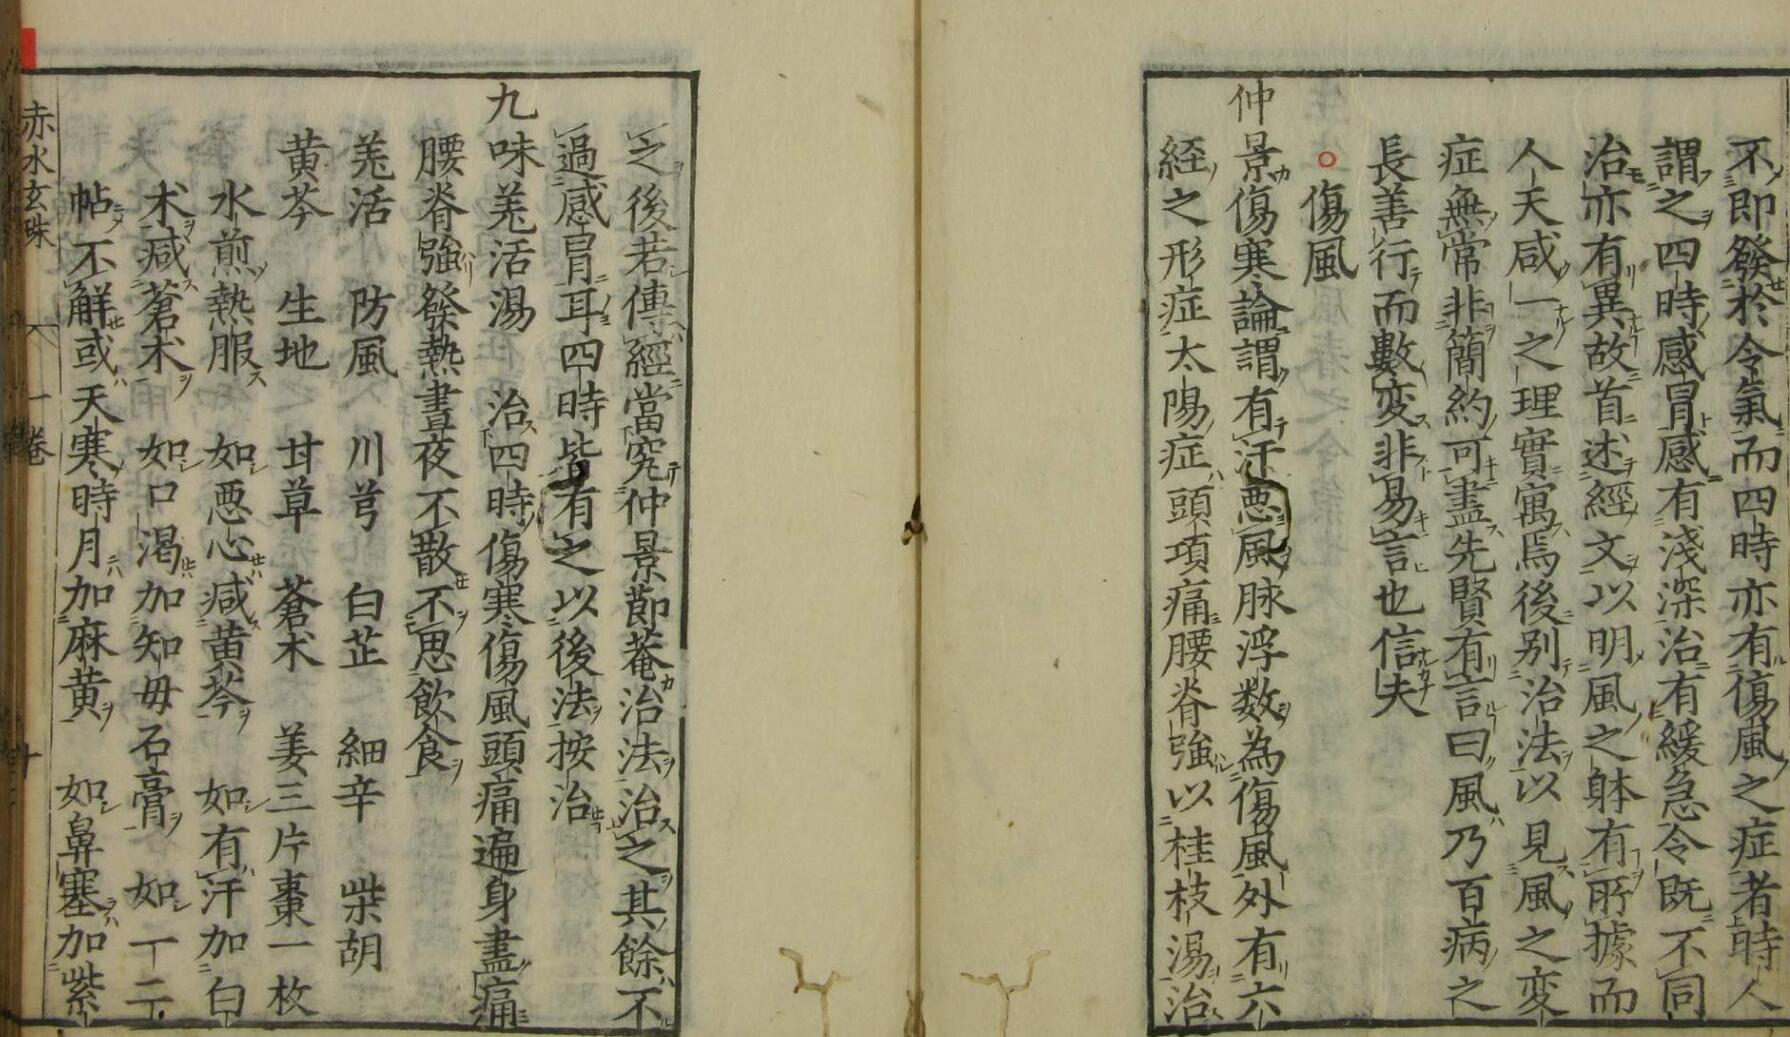 不即發於令氣而四時亦有傷風之症者時人
謂之四時感冒感有淺深治有緩急令既不同
治亦有異故首述經文以明風之躰有所據而
人天咸一之理實寓焉後别治法以見風之変
症無常非簡約可盡先賢有言曰風乃百病之
長善行而數変非易言也信夫
○傷風
仲景傷寒論謂有汗悪風脉浮数為傷風外有六
経之形症太陽症頭項痛腰脊強以桂枝湯治
之後若傳經當究仲景節菴治法治之其餘不
過感冒耳四時皆有之以後法按治
九味羗活湯 治四時傷寒傷風頭痛遍身盡痛
腰脊強發熱晝夜不散不思飲食
羗活 防風 川芎 白芷 細辛 柴胡
黄芩 生地 甘草 蒼术 姜三片棗一枚
水煎熱服 如悪心减黄芩 如有汗加白
术减蒼术 如口渇加知母石膏 如一二
帖不解或天寒時月加麻黄 如鼻塞加紫
赤水玄珠 一卷 十